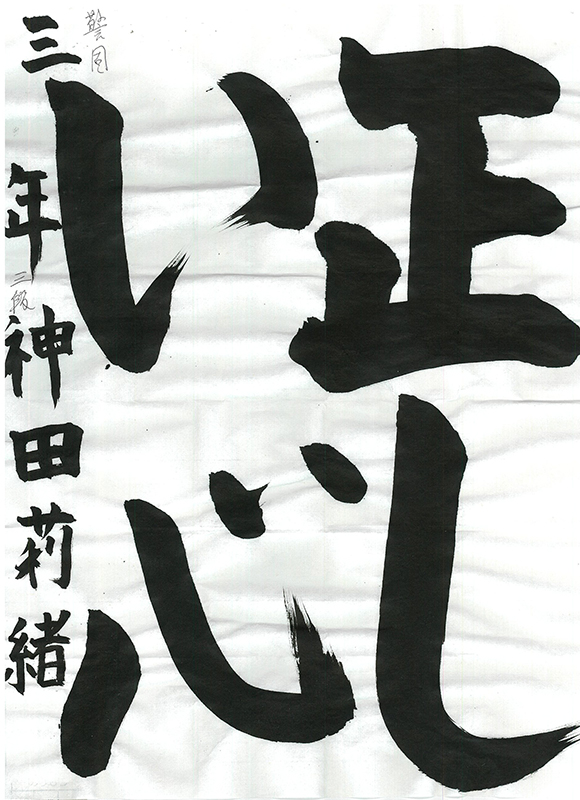 正し
い心
三年 神田莉緒
三級